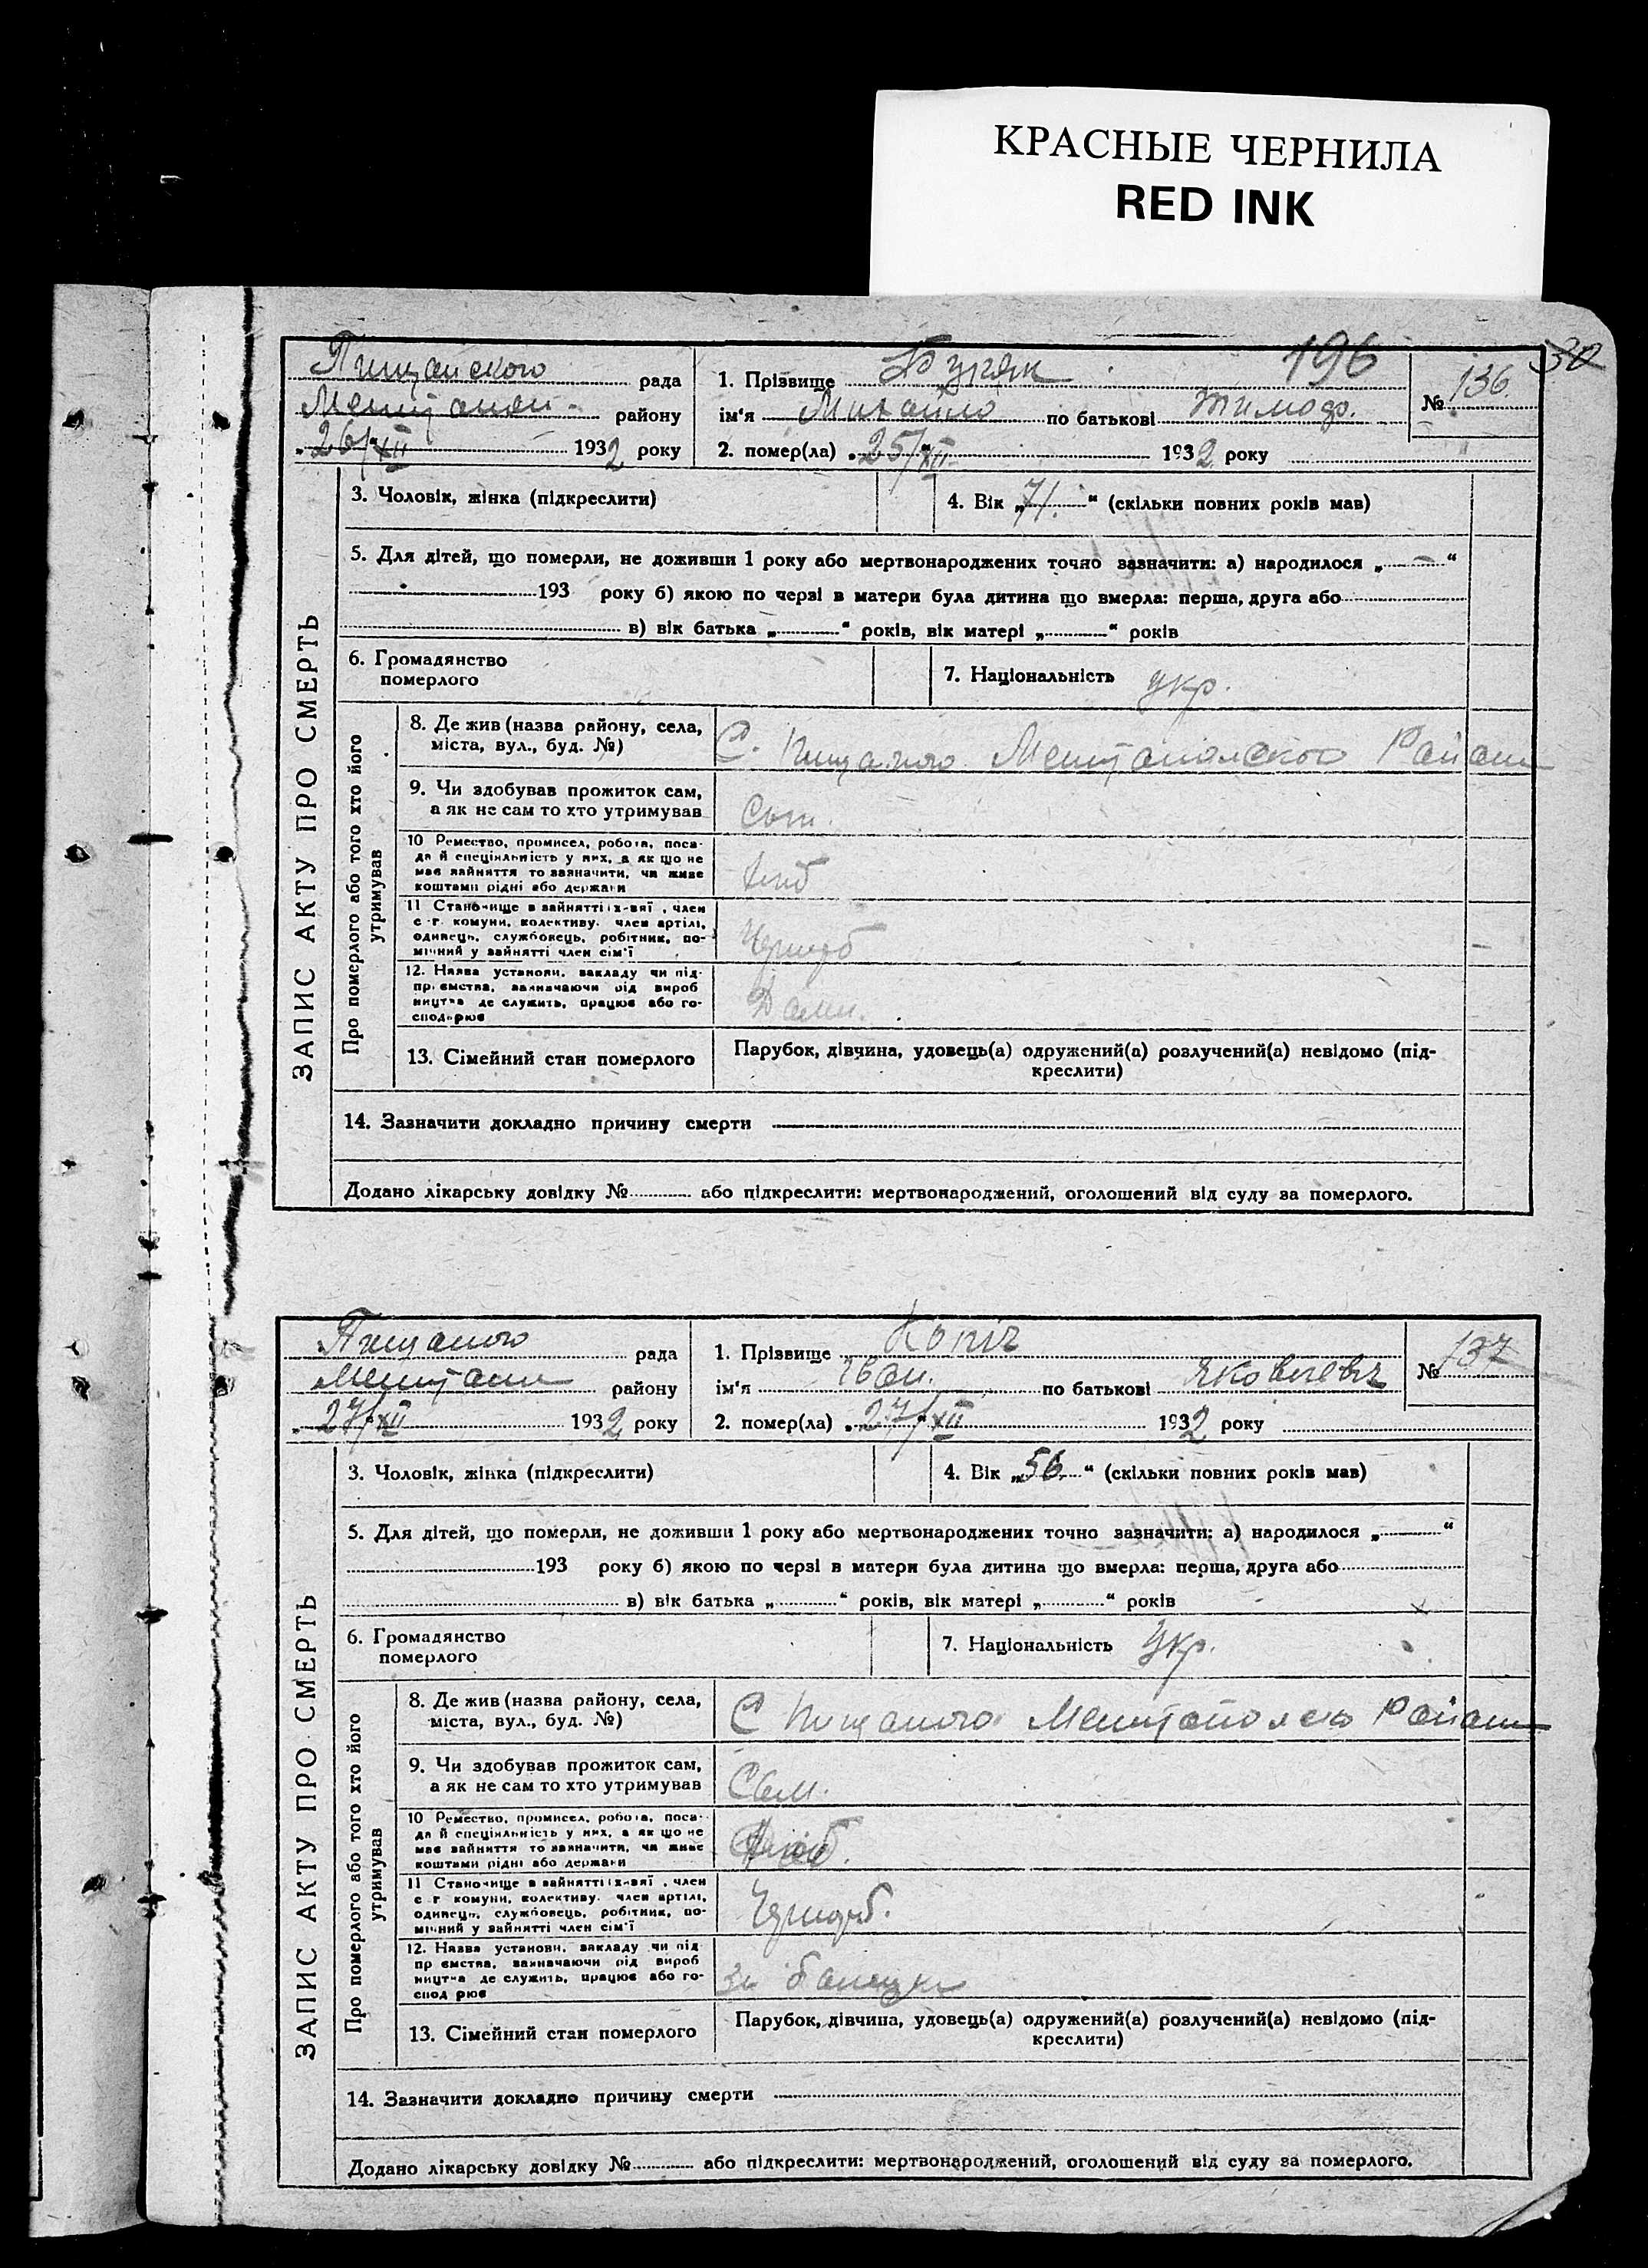 КРАСНЫЕ ЧЕРНИЛА
RED INK
196
32
Пищанского рада
Мелитопол. району
26/XII 1932 року
1. Прізвище
ім'я Михайло по батькові Тимоф.
№ 136.
2. помер(ла) 25/XII 1932 року
ЗАПИС АКТУ ПРО СМЕРТЬ
3. Чоловік, жінка (підкреслити)
4. Вік „71." (скільки повних років мав)
5. Для дітей, що померли, не доживши 1 року або мертвонароджених точно зазначити: а) народилося „ — "
193 року б) якою по черзі в матери була дитина що вмерла: перша, друга або
в) вік батька „ " років, вік матері „ " років
6. Громадянство
померлого
7. Національність укр.
Про померлого або того хто його
утримував
8. Де жив (назва району, села,
міста, вул., буд. №)
С. Пищаного Мелитопольского Району
9. Чи здобував прожиток сам,
а як не сам то хто утримував
Сам.
10 Ремество, промисел, робота, поса-
да й спеціяльність у них, а як що не
має зайняття то зазначити, чи живе
коштами рідні або держави
Хліб
11 Становище в зайнятті: х-вяї, член
с.-г. комуни, колективу, член артілі,
одинець, службовець, робітник, по-
мічний у зайнятті член сім'ї
12. Назва установи, закладу чи під-
приємства, зазначаючи рід вироб
ництва де служить, працює або го-
сподарює
13. Сімейний стан померлого
Парубок, дівчина, удовець(а) одружений(а) розлучений(а) невідомо (під-
креслити)
14. Зазначити докладно причину смерти
Додано лікарську довідку № або підкреслити: мертвонароджений, оголошений від суду за померлого.
Пищаного рада
Мелитопол району
27/XII 1932 року
1. Прізвище Копіч
ім'я Іван. по батькові Яковлевич
№ 137
2. помер(ла) 27/XII 1932 року
ЗАПИС АКТУ ПРО СМЕРТЬ
3. Чоловік, жінка (підкреслити)
4. Вік „56" (скільки повних років мав)
5. Для дітей, що померли, не доживши 1 року або мертвонароджених точно зазначити: а) народилося „ "
193 року б) якою по черзі в матери була дитина що вмерла: перша, друга або
в) вік батька „ " років, вік матері „ " років
6. Громадянство
померлого
7. Національність Укр.
Про померлого або того хто його
утримував
8. Де жив (назва району, села,
міста, вул., буд. №)
С Пищаного Мелитопольско Району
9. Чи здобував прожиток сам,
а як не сам то хто утримував
Сам.
10 Ремество, промисел, робота, поса-
да й спеціяльність у них, а як що не
має зайняття то зазначити, чи живе
коштами рідні або держави
Хліб.
11 Становище в зайнятті: х-вяї, член
с.-г. комуни, колективу, член артілі,
одинець, службовець, робітник, по-
мічний у зайнятті член сім'ї
12. Назва установи, закладу чи під
приємства, зазначаючи рід вироб
ництва де служить, працює або го-
сподарює
13. Сімейний стан померлого
Парубок, дівчина, удовець(а) одружений(а) розлучений(а) невідомо (під-
креслити)
14. Зазначити докладно причину смерти
Додано лікарську довідку № або підкреслити: мертвонароджений, оголошений від суду за померлого.